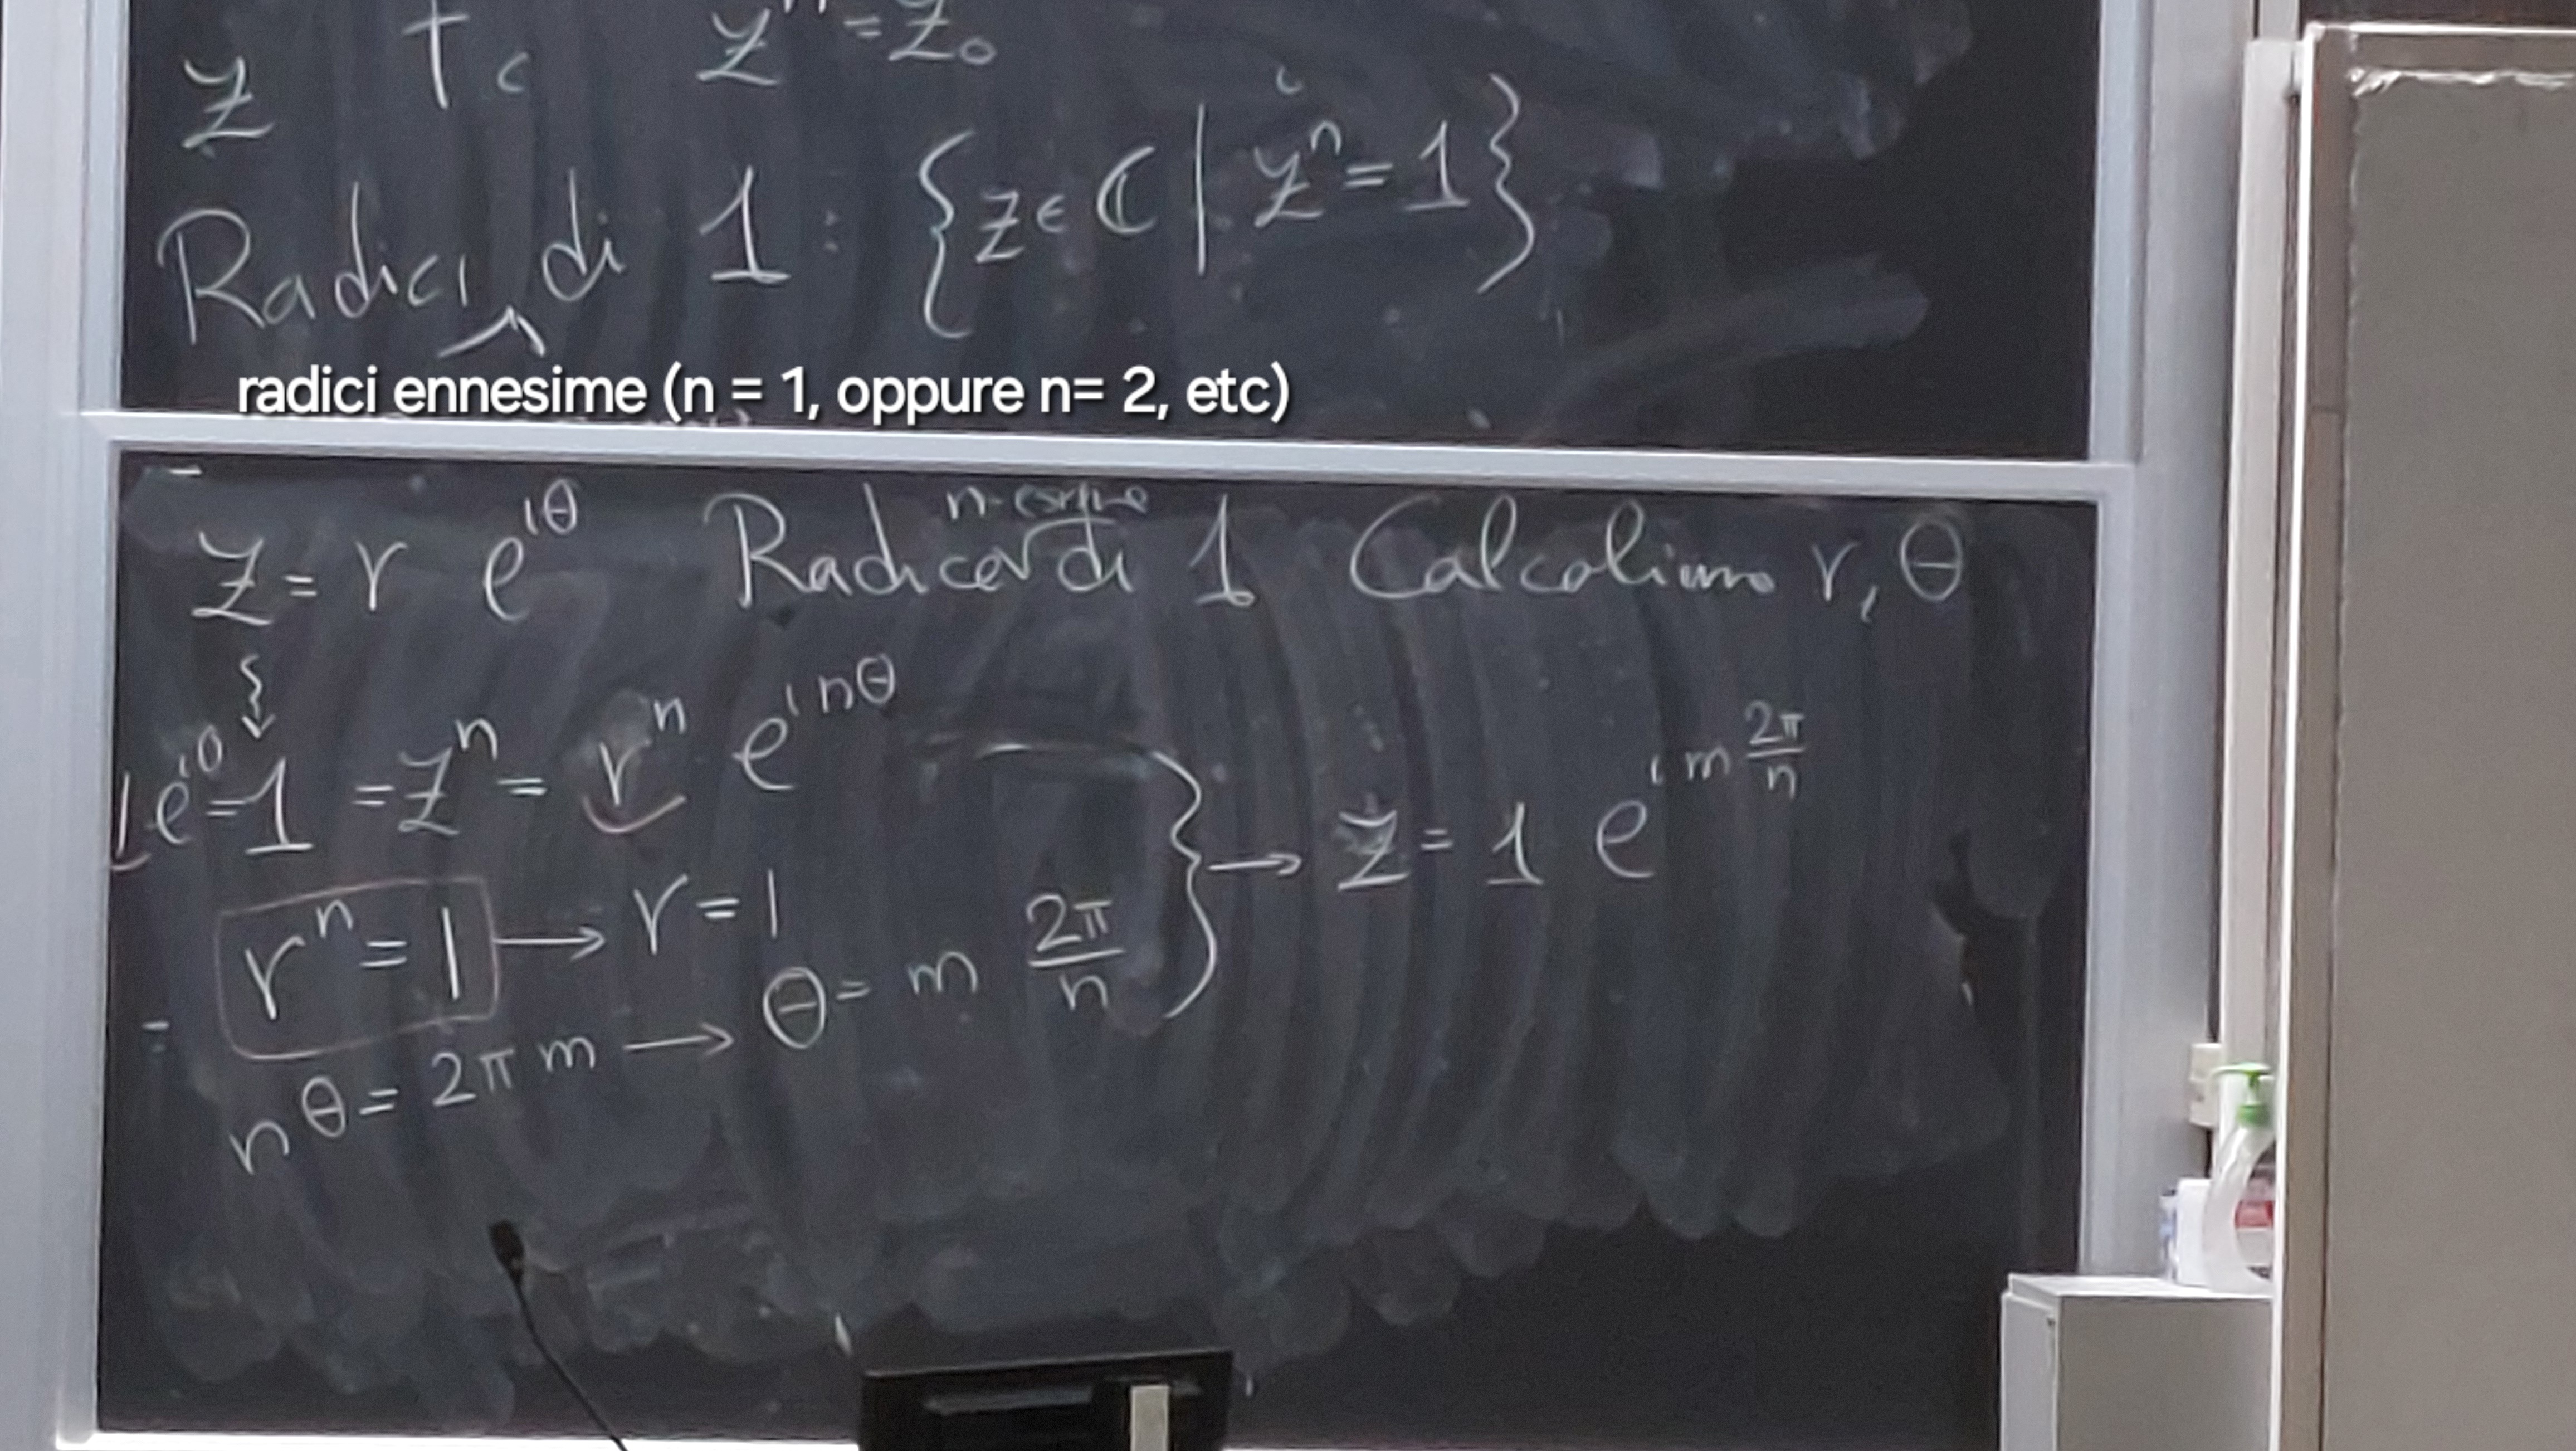 z t.c z^n = z_0
Radici di 1 : {z ∈ ℂ | z^n = 1}
radici ennesime (n = 1, oppure n= 2, etc)
z = r e^{iθ} Radice n-esime di 1 Calcoliamo r, θ
1 e^{i0} = 1 = z^n = r^n e^{inθ}
r^n = 1 → r = 1
nθ = 2πm → θ = m 2π/n } → z = 1 e^{i m 2π/n}